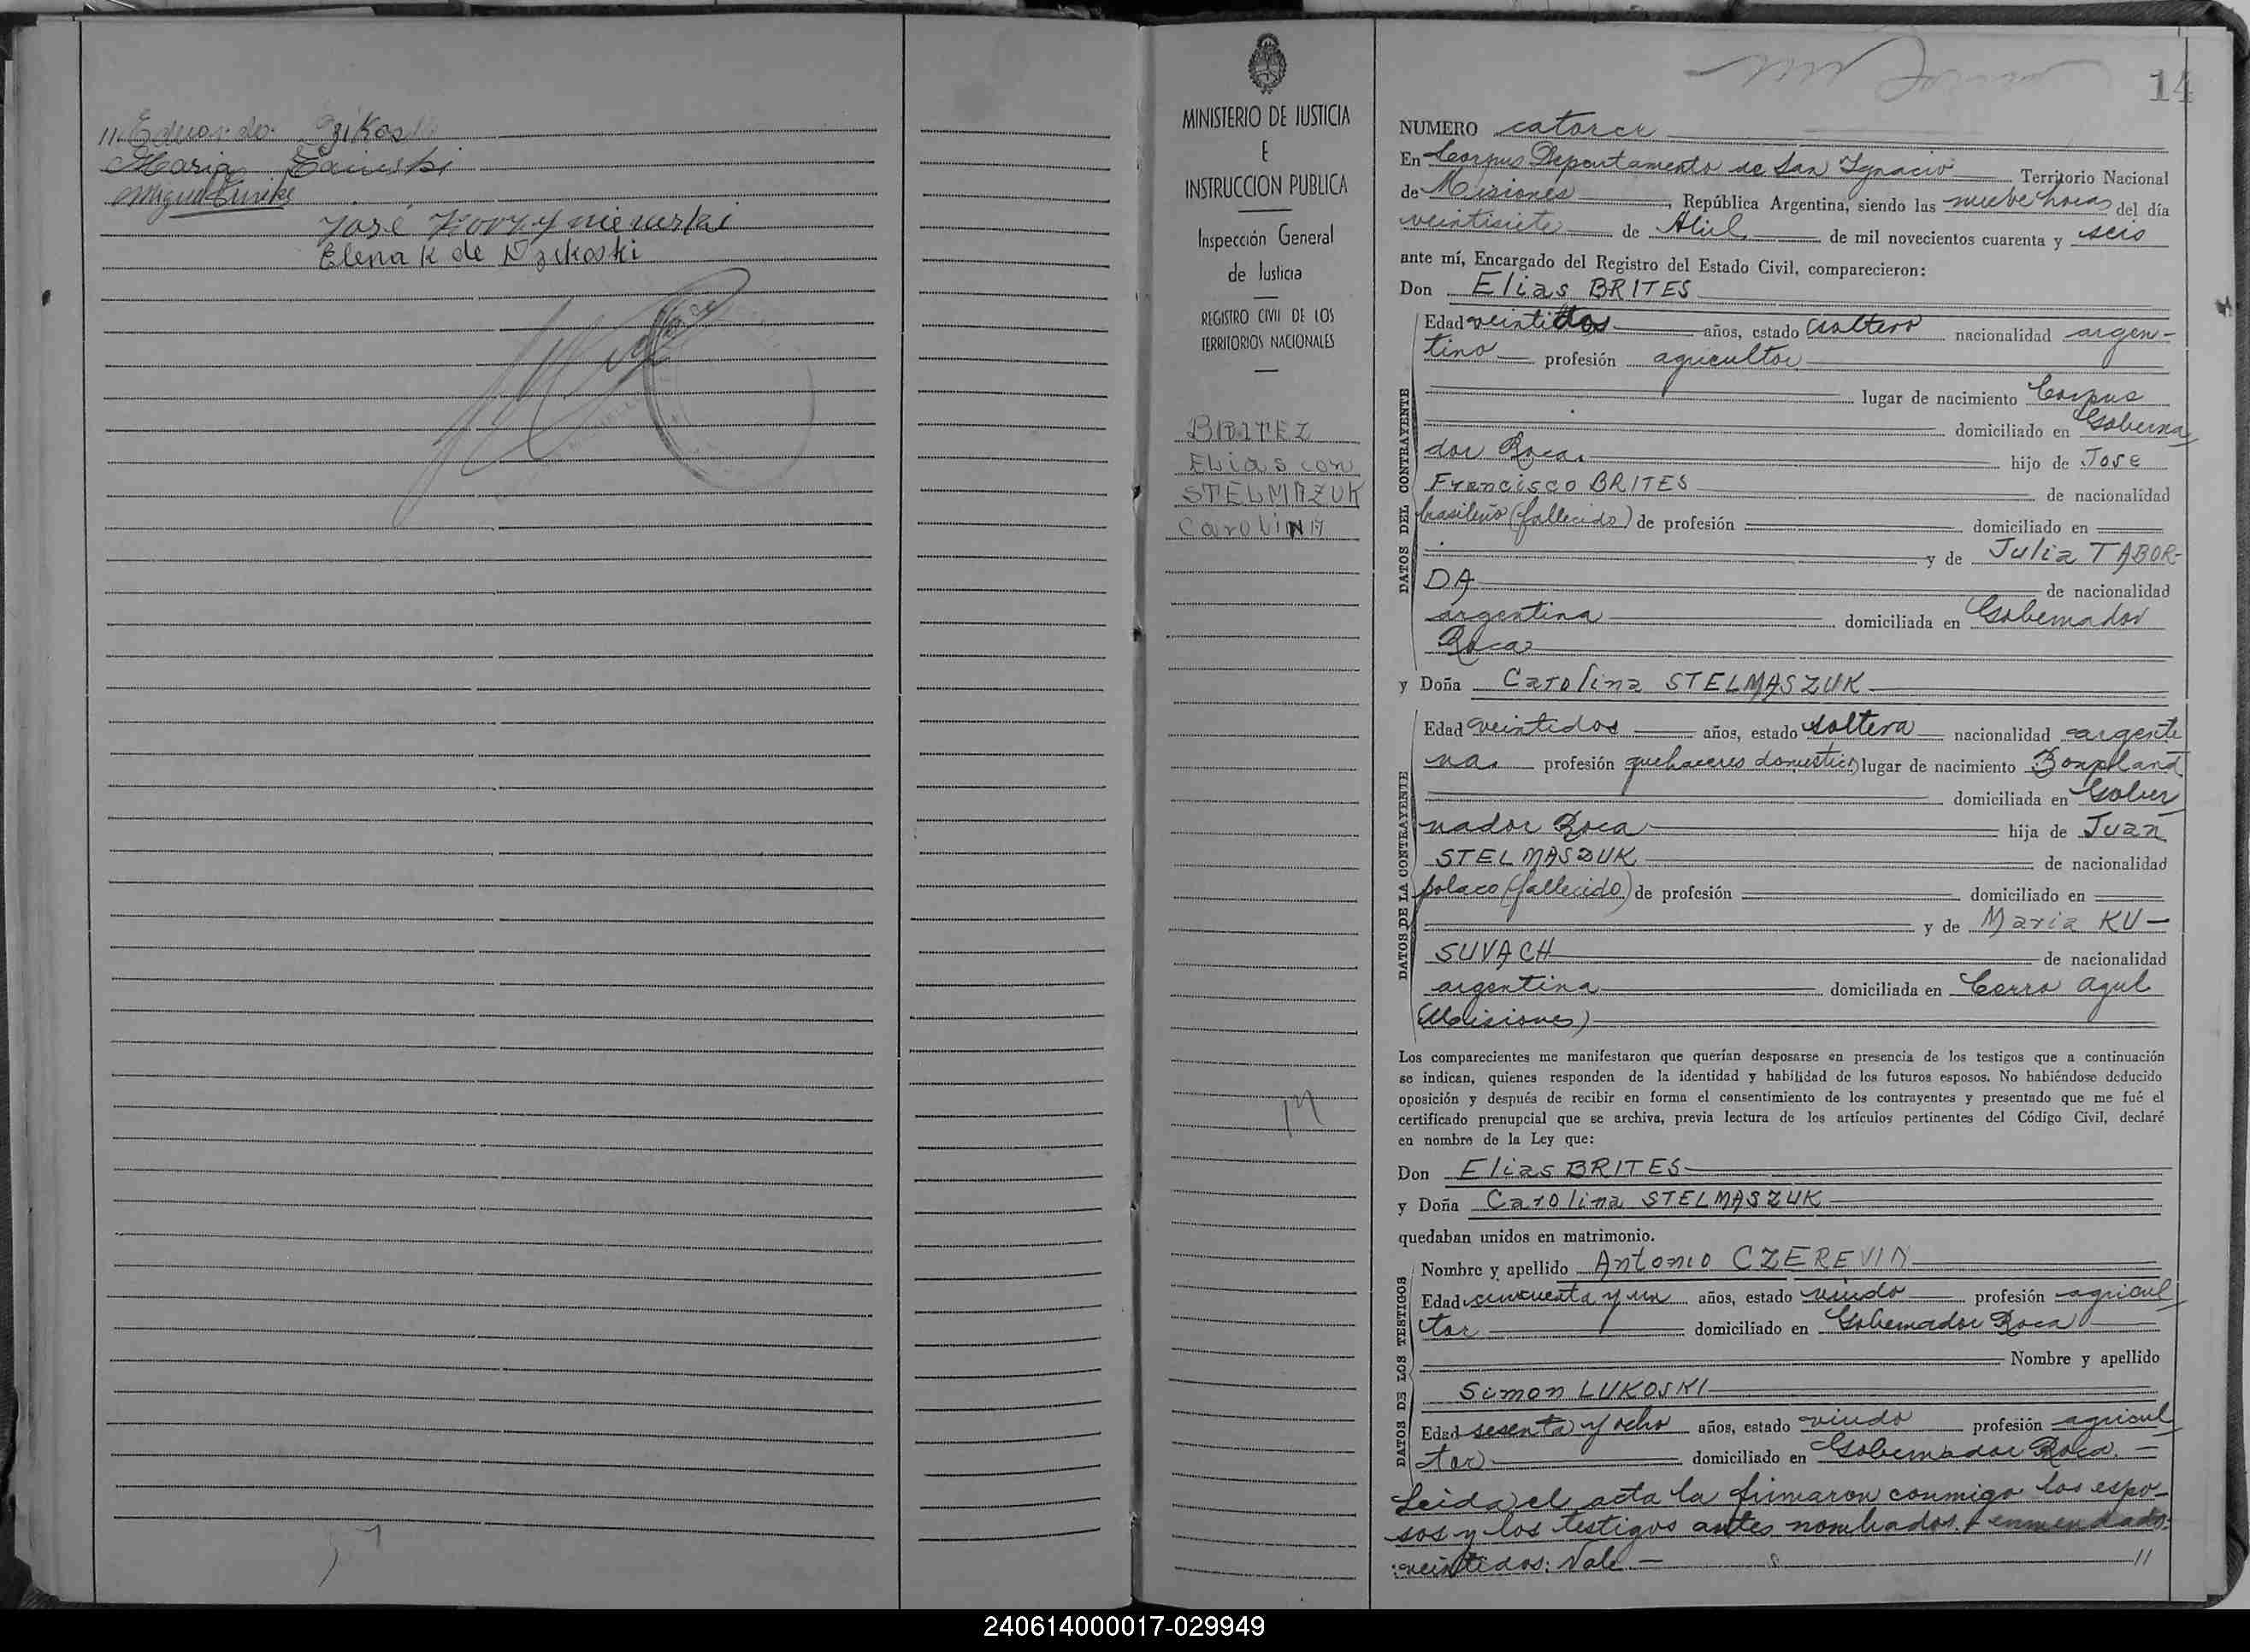 11. Eduardo Dzikoski
Maria
Miguel
José
Elena K de Dzikoski
MINISTERIO DE JUSTICIA
E
INSTRUCCION PUBLICA
Inspección General
de Justicia
REGISTRO CIVIL DE LOS
TERRITORIOS NACIONALES
BRITEZ
Elias con
STELMAZUK
CaroliNA
14
NUMERO catorce
En Corpus Departamento de San Ygnacio Territorio Nacional
de Misiones, República Argentina, siendo las nueve horas del día
veintisiete de Abril de mil novecientos cuarenta y seis
ante mí, Encargado del Registro del Estado Civil, comparecieron:
Don Elias BRITES
DATOS DEL CONTRAYENTE
Edad veintidos años, estado soltero nacionalidad argen-
tino profesión agricultor
lugar de nacimiento Corpus
domiciliado en Goberna
dor Roca. hijo de Jose
Francisco BRITES de nacionalidad
brasileño (fallecido) de profesión domiciliado en
y de Julia TABOR-
DA de nacionalidad
argentina domiciliada en Gobernador
Roca
y Doña Carolina STELMASZUK
DATOS DE LA CONTRAYENTE
Edad veintidos años, estado soltera nacionalidad argenti
na. profesión quehaceres domestico lugar de nacimiento Bonpland
domiciliada en Gober
nador Roca hija de Juan
STELMASZUK de nacionalidad
polaco (fallecido) de profesión domiciliado en
y de Maria KU-
SUVACH de nacionalidad
argentina domiciliada en Cerro Azul
(Misiones)
Los comparecientes me manifestaron que querían desposarse en presencia de los testigos que a continuación
se indican, quienes responden de la identidad y habilidad de los futuros esposos. No habiéndose deducido
oposición y después de recibir en forma el consentimiento de los contrayentes y presentado que me fué el
certificado prenupcial que se archiva, previa lectura de los artículos pertinentes del Código Civil, declaré
en nombre de la Ley que:
Don Elias BRITES
y Doña Carolina STELMASZUK
quedaban unidos en matrimonio.
DATOS DE LOS TESTIGOS
Nombre y apellido Antonio
Edad cincuenta y un años, estado viudo profesión agricul
tor domiciliado en Gobernador Roca
Nombre y apellido
Simon LUKOSKI
Edad sesenta y ocho años, estado viudo profesión agricul
tor domiciliado en Gobernador Roca. -
Leida el acta la firmaron conmigo los espo-
sos y los testigos antes nombrados. enmendado:
veintidos: Vale - //
240614000017-029949